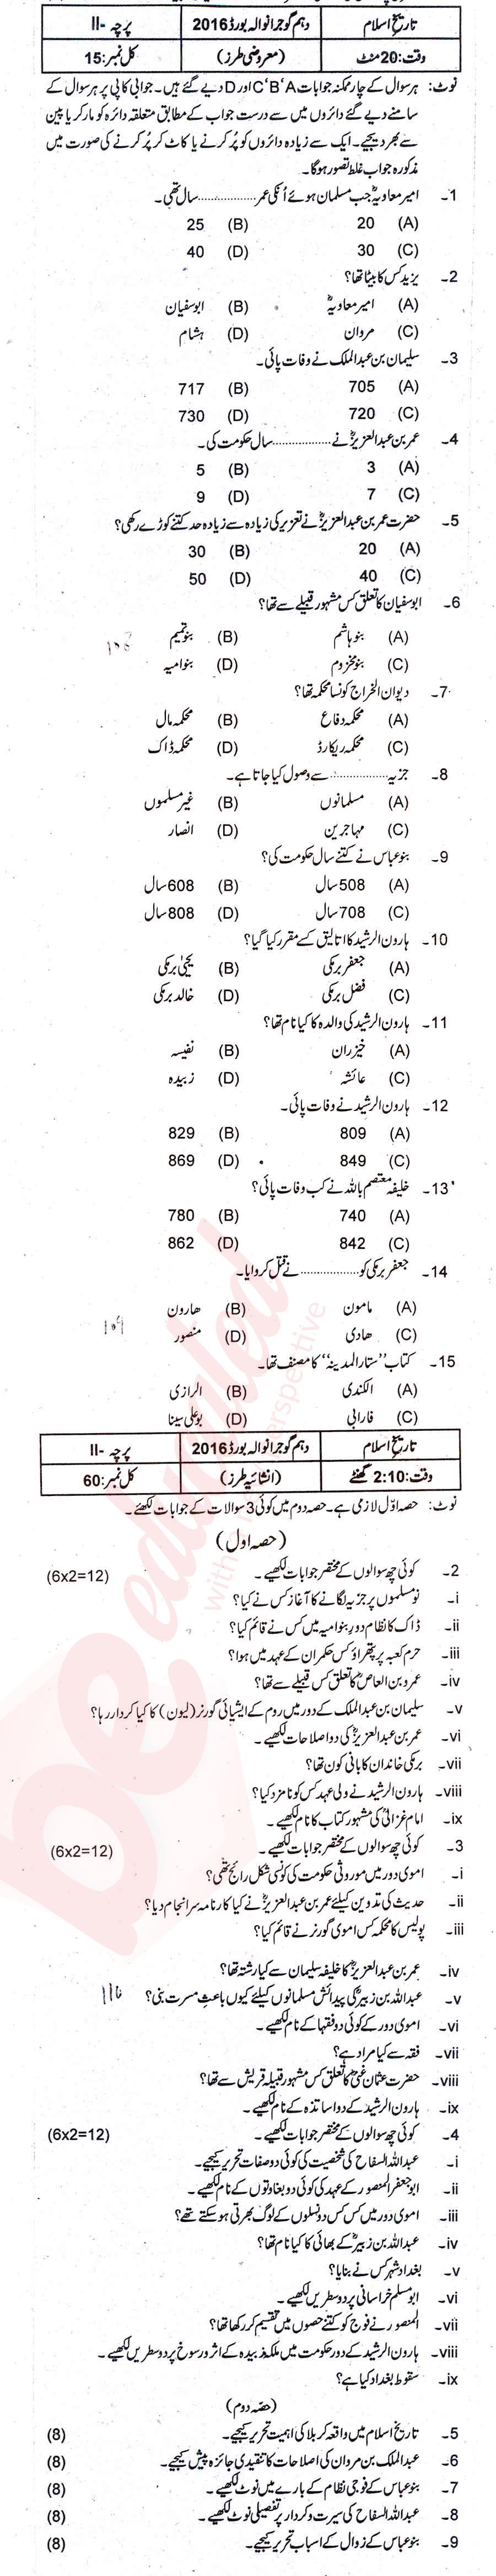 تاریخ اسلام دہم گوجرانوالہ بورڈ 2016 پرچہ -II
وقت:20منٹ (معروضی طرز) کل نمبر:15
نوٹ: ہر سوال کے چار ممکنہ جوابات A'B'C اور D دیے گئے ہیں۔ جوابی کاپی پر ہر سوال کے
سامنے دیے گئے دائروں میں سے درست جواب کے مطابق متعلقہ دائرہ کو مارکر یا پین
سے بھر دیجیے۔ ایک سے زیادہ دائروں کو پُر کرنے یا کاٹ کر پُر کرنے کی صورت میں
مذکورہ جواب غلط تصور ہوگا۔
1۔ امیر معاویہؓ جب مسلمان ہوئے اُنکی عمر............سال تھی۔
(A) 20 (B) 25
(C) 30 (D) 40
2۔ یزید کس کا بیٹا تھا؟
(A) امیر معاویہؓ (B) ابوسفیان
(C) مروان (D) ہشام
3۔ سلیمان بن عبدالملک نے وفات پائی۔
(A) 705 (B) 717
(C) 720 (D) 730
4۔ عمر بن عبدالعزیزؒ نے ............ سال حکومت کی۔
(A) 3 (B) 5
(C) 7 (D) 9
5۔ حضرت عمر بن عبدالعزیزؒ نے تعزیر کی زیادہ سے زیادہ حد کتنے کوڑے رکھی؟
(A) 20 (B) 30
(C) 40 (D) 50
6۔ ابوسفیان کا تعلق کس مشہور قبیلے سے تھا؟
(A) بنو ہاشم (B) بنو تمیم
(C) بنو مخزوم (D) بنو امیہ
7۔ دیوان الخراج کونسا محکمہ تھا؟
(A) محکمہ دفاع (B) محکمہ مال
(C) محکمہ ریکارڈ (D) محکمہ ڈاک
8۔ جزیہ ............ سے وصول کیا جاتا ہے۔
(A) مسلمانوں (B) غیر مسلموں
(C) مہاجرین (D) انصار
9۔ بنو عباس نے کتنے سال حکومت کی؟
(A) 508سال (B) 608سال
(C) 708سال (D) 808سال
10۔ ہارون الرشید کا اتالیق کسے مقرر کیا گیا؟
(A) جعفر برمکی (B) یحییٰ برمکی
(C) فضل برمکی (D) خالد برمکی
11۔ ہارون الرشید کی والدہ کا کیا نام تھا؟
(A) خیزران (B) نفیسہ
(C) عائشہ (D) زبیدہ
12۔ ہارون الرشید نے وفات پائی۔
(A) 809 (B) 829
(C) 849 (D) 869
13۔ خلیفہ معتصم باللہ نے کب وفات پائی؟
(A) 740 (B) 780
(C) 842 (D) 862
14۔ جعفر برمکی کو ............ نے قتل کروایا۔
(A) مامون (B) ھارون
(C) ھادی (D) منصور
15۔ کتاب "ستار المدینہ" کا مصنف تھا۔
(A) الکندی (B) الرازی
(C) فارابی (D) بوعلی سینا
تاریخ اسلام دہم گوجرانوالہ بورڈ 2016 پرچہ -II
وقت:2:10 گھنٹے (انشائیہ طرز) کل نمبر:60
نوٹ: حصہ اوّل لازمی ہے۔ حصہ دوم میں کوئی 3 سوالات کے جوابات لکھئے۔
(حصہ اول)
2۔ کوئی چھ سوالوں کے مختصر جوابات لکھیے۔ (6x2=12)
i۔ نومسلموں پر جزیہ لگانے کا آغاز کس نے کیا؟
ii۔ ڈاک کا نظام دورِ بنوامیہ میں کس نے قائم کیا؟
iii۔ حرم کعبہ پر پتھراؤ کس حکمران کے عہد میں ہوا؟
iv۔ عمرو بن العاصؓ کا تعلق کس قبیلے سے تھا؟
v۔ سلیمان بن عبدالملک کے دور میں روم کے ایشیائی گورنر (لیون) کا کیا کردار رہا؟
vi۔ عمر بن عبدالعزیزؒ کی دو اصلاحات لکھیے۔
vii۔ برمکی خاندان کا بانی کون تھا؟
viii۔ ہارون الرشید نے ولی عہد کس کو نامزد کیا؟
ix۔ امام غزالیؒ کی مشہور کتاب کا نام لکھیے۔
3۔ کوئی چھ سوالوں کے مختصر جوابات لکھیے۔ (6x2=12)
i۔ اموی دور میں موروثی حکومت کی کونسی شکل رائج تھی؟
ii۔ حدیث کی تدوین کیلئے عمر بن عبدالعزیزؒ نے کیا کارنامہ سرانجام دیا؟
iii۔ پولیس کا محکمہ کس اموی گورنر نے قائم کیا؟
iv۔ عمر بن عبدالعزیزؒ کا خلیفہ سلیمان سے کیا رشتہ تھا؟
v۔ عبداللہ بن زبیرؓ کی پیدائش مسلمانوں کیلئے کیوں باعثِ مسرت بنی؟
vi۔ اموی دور کے کوئی دو فقہا کے نام لکھیے۔
vii۔ فقہ سے کیا مراد ہے؟
viii۔ حضرت عثمان غنیؓ کا تعلق کس مشہور قبیلہ قریش سے تھا؟
ix۔ ہارون الرشید کے دو اساتذہ کے نام لکھیے۔
4۔ کوئی چھ سوالوں کے مختصر جوابات لکھیے۔ (6x2=12)
i۔ عبداللہ السفاح کی شخصیت کی کوئی دو صفات تحریر کیجیے۔
ii۔ ابوجعفر المنصور کے عہد کی کوئی دو بغاوتوں کے نام لکھیے۔
iii۔ اموی دور میں کس کس دو نسلوں کے لوگ بھرتی ہو سکتے تھے؟
iv۔ عبداللہ بن زبیرؓ کے بھائی کا کیا نام تھا؟
v۔ بغداد شہر کس نے بنایا؟
vi۔ ابومسلم خراسانی پر دو سطریں لکھیے۔
vii۔ المنصور نے فوج کو کتنے حصوں میں تقسیم کر رکھا تھا؟
viii۔ ہارون الرشید کے دور حکومت میں ملکہ زبیدہ کے اثر و رسوخ پر دو سطریں لکھیے۔
ix۔ سقوط بغداد کیا ہے؟
(حصہ دوم)
5۔ تاریخ اسلام میں واقعہ کربلا کی اہمیت تحریر کیجیے۔ (8)
6۔ عبدالملک بن مروان کی اصلاحات کا تنقیدی جائزہ پیش کیجیے۔ (8)
7۔ بنو عباس کے فوجی نظام کے بارے میں نوٹ لکھیے۔ (8)
8۔ عبداللہ السفاح کی سیرت و کردار پر تفصیلی نوٹ لکھیے۔ (8)
9۔ بنو عباس کے زوال کے اسباب تحریر کیجیے۔ (8)